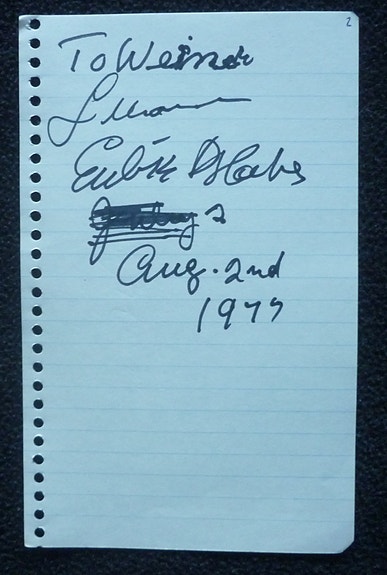 2
To Werner
Eubie Blake
2
Aug. 2nd
1977